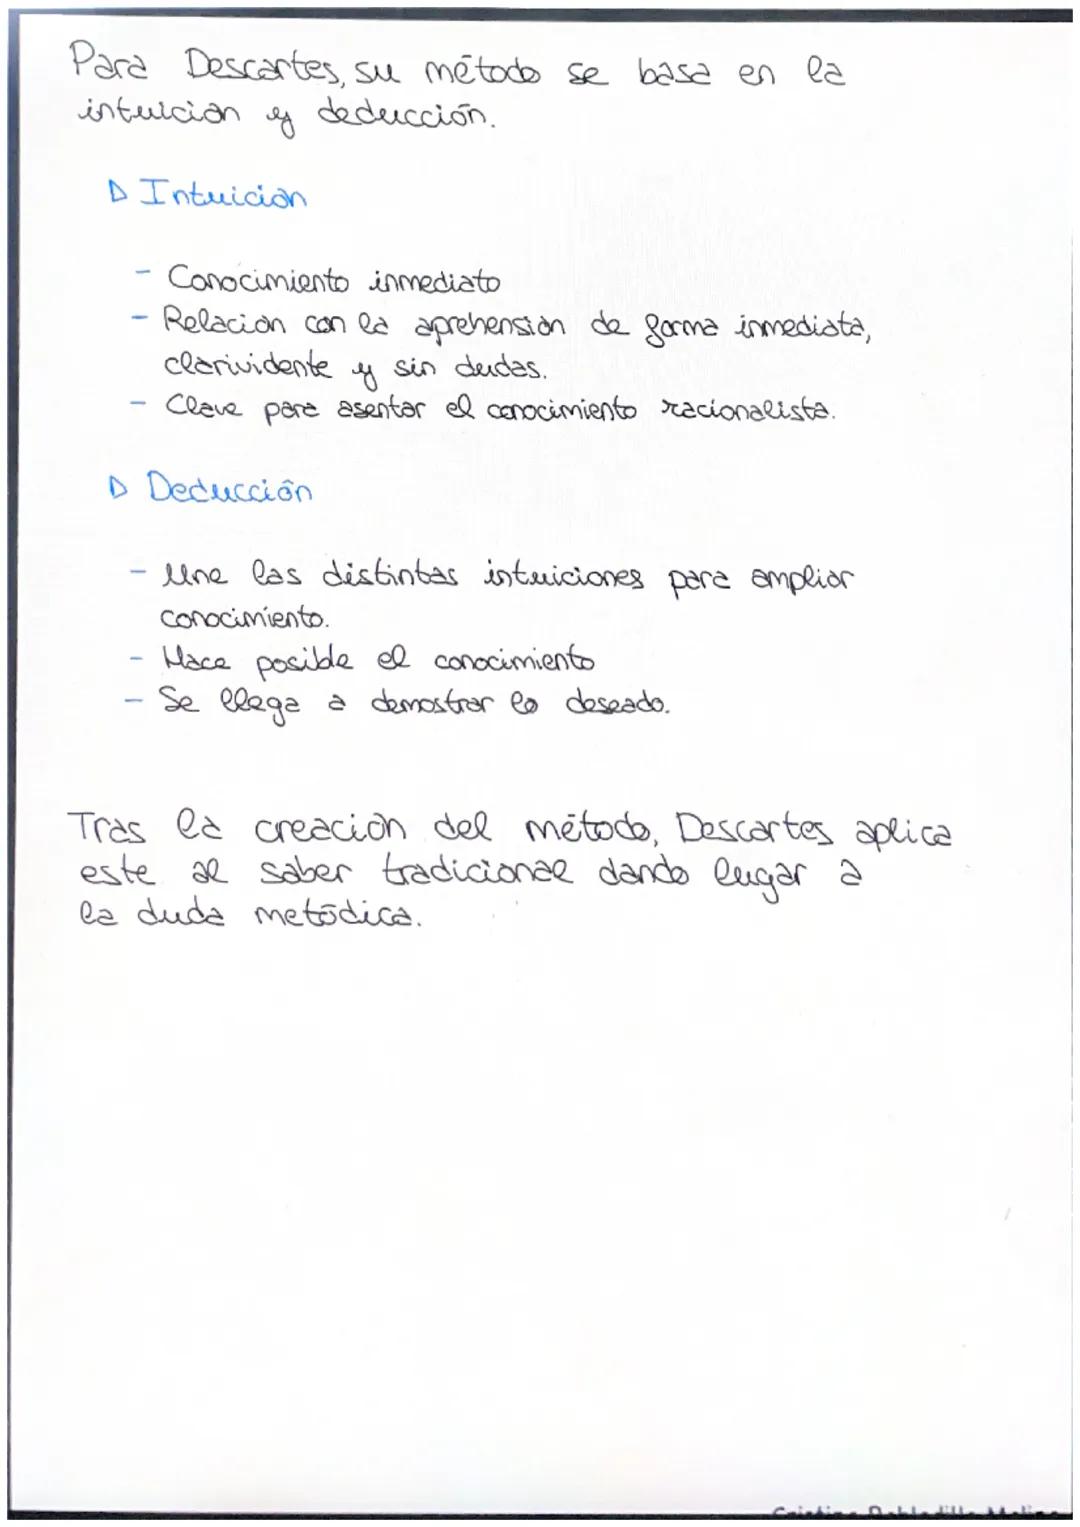 Para Descartes, su método se basa en la
intuición y deducción.
▷ Intuición
- Conocimiento inmediato
- Relación con la aprehensión de forma inmediata,
clarividente y sin dudas.
- Clave para asentar el conocimiento racionalista.
▷ Deducción
- Une las distintas intuiciones para ampliar
conocimiento.
- Hace posible el conocimiento
- Se llega a demostrar lo deseado.
Tras la creación del método, Descartes aplica
este al saber tradicional dando lugar a
la duda metódica.